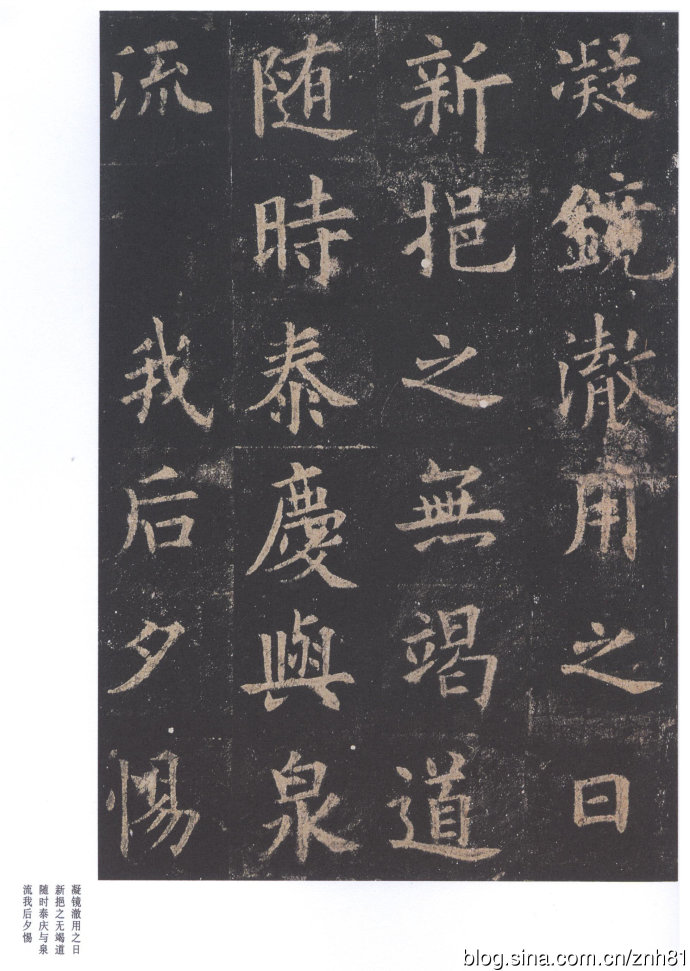 凝鏡澈用之日
新挹之無竭道
随時泰慶與泉
流 我后夕惕
凝镜澈用之日
新挹之无竭道
随时泰庆与泉
流我后夕惕
blog.sina.com.cn/znh81